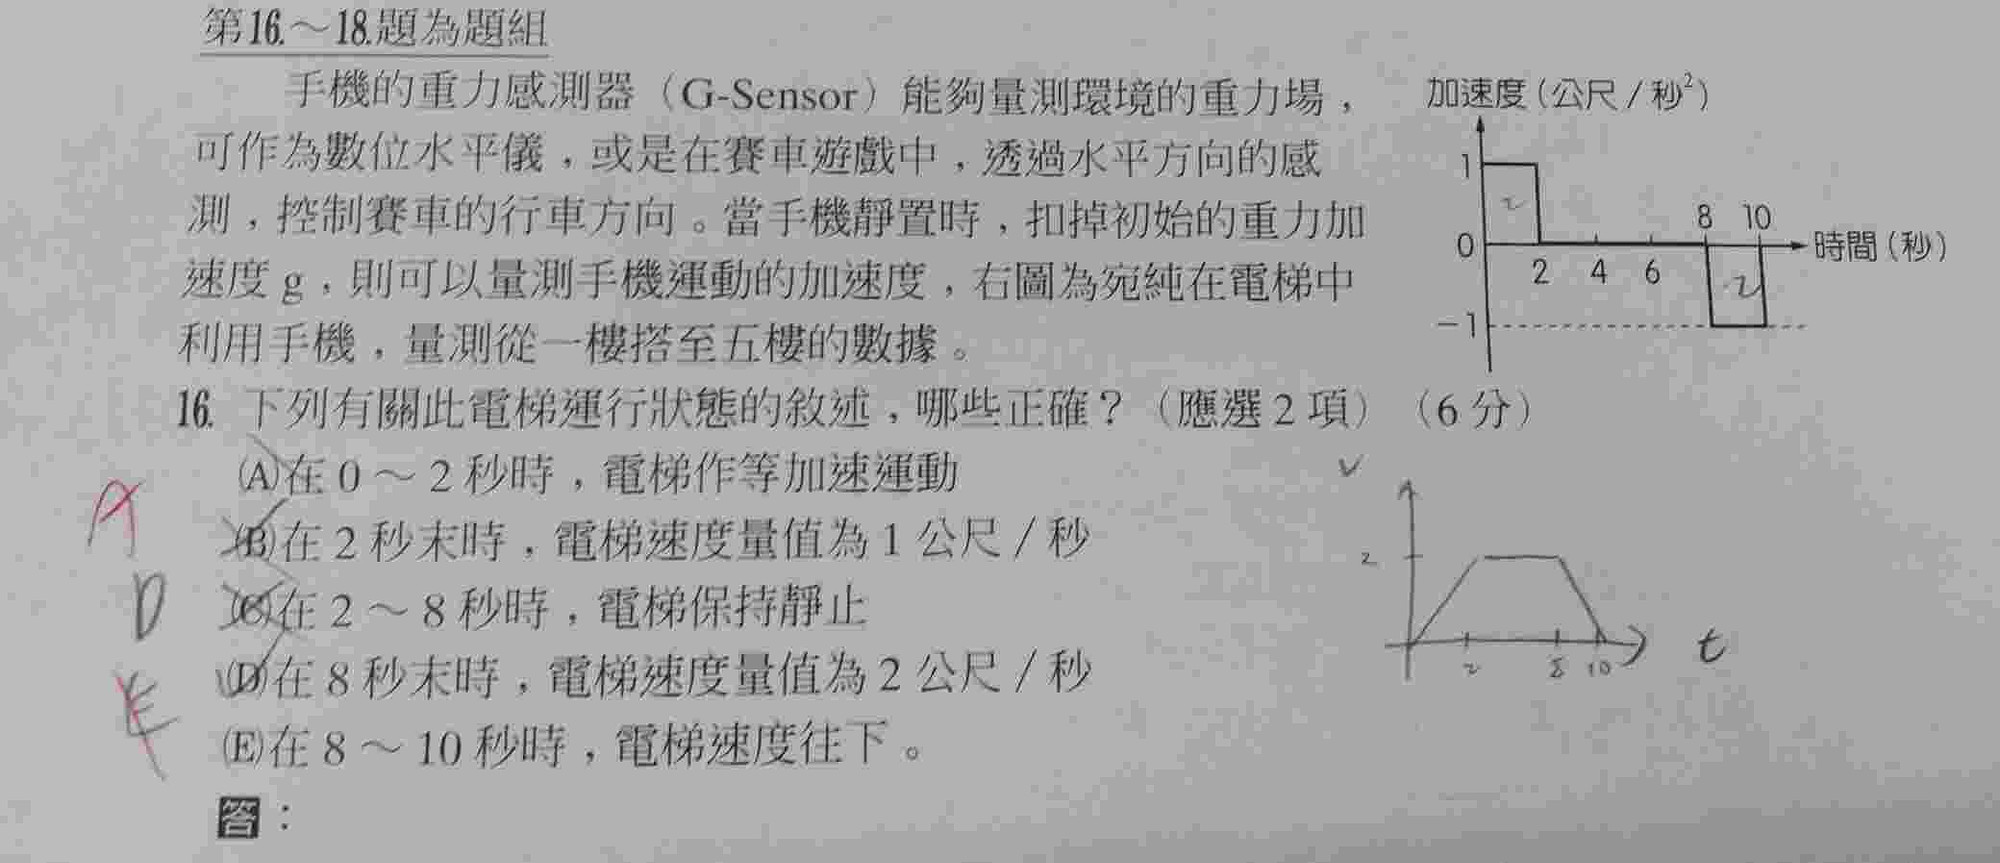 第16.～18.題為題組
手機的重力感測器（G-Sensor）能夠量測環境的重力場，
可作為數位水平儀，或是在賽車遊戲中，透過水平方向的感
測，控制賽車的行車方向。當手機靜置時，扣掉初始的重力加
速度 g，則可以量測手機運動的加速度，右圖為宛純在電梯中
利用手機，量測從一樓搭至五樓的數據。
加速度(公尺/秒²)
1
2
8 10
0
時間(秒)
2 4 6
2
-1
16. 下列有關此電梯運行狀態的敘述，哪些正確？（應選2項）（6分）
(A)在 0～2 秒時，電梯作等加速運動
(B)在 2 秒末時，電梯速度量值為 1 公尺/秒
(C)在 2～8 秒時，電梯保持靜止
(D)在 8 秒末時，電梯速度量值為 2 公尺/秒
(E)在 8～10 秒時，電梯速度往下。
答：
A
D
E
v
2
2 8 10
t